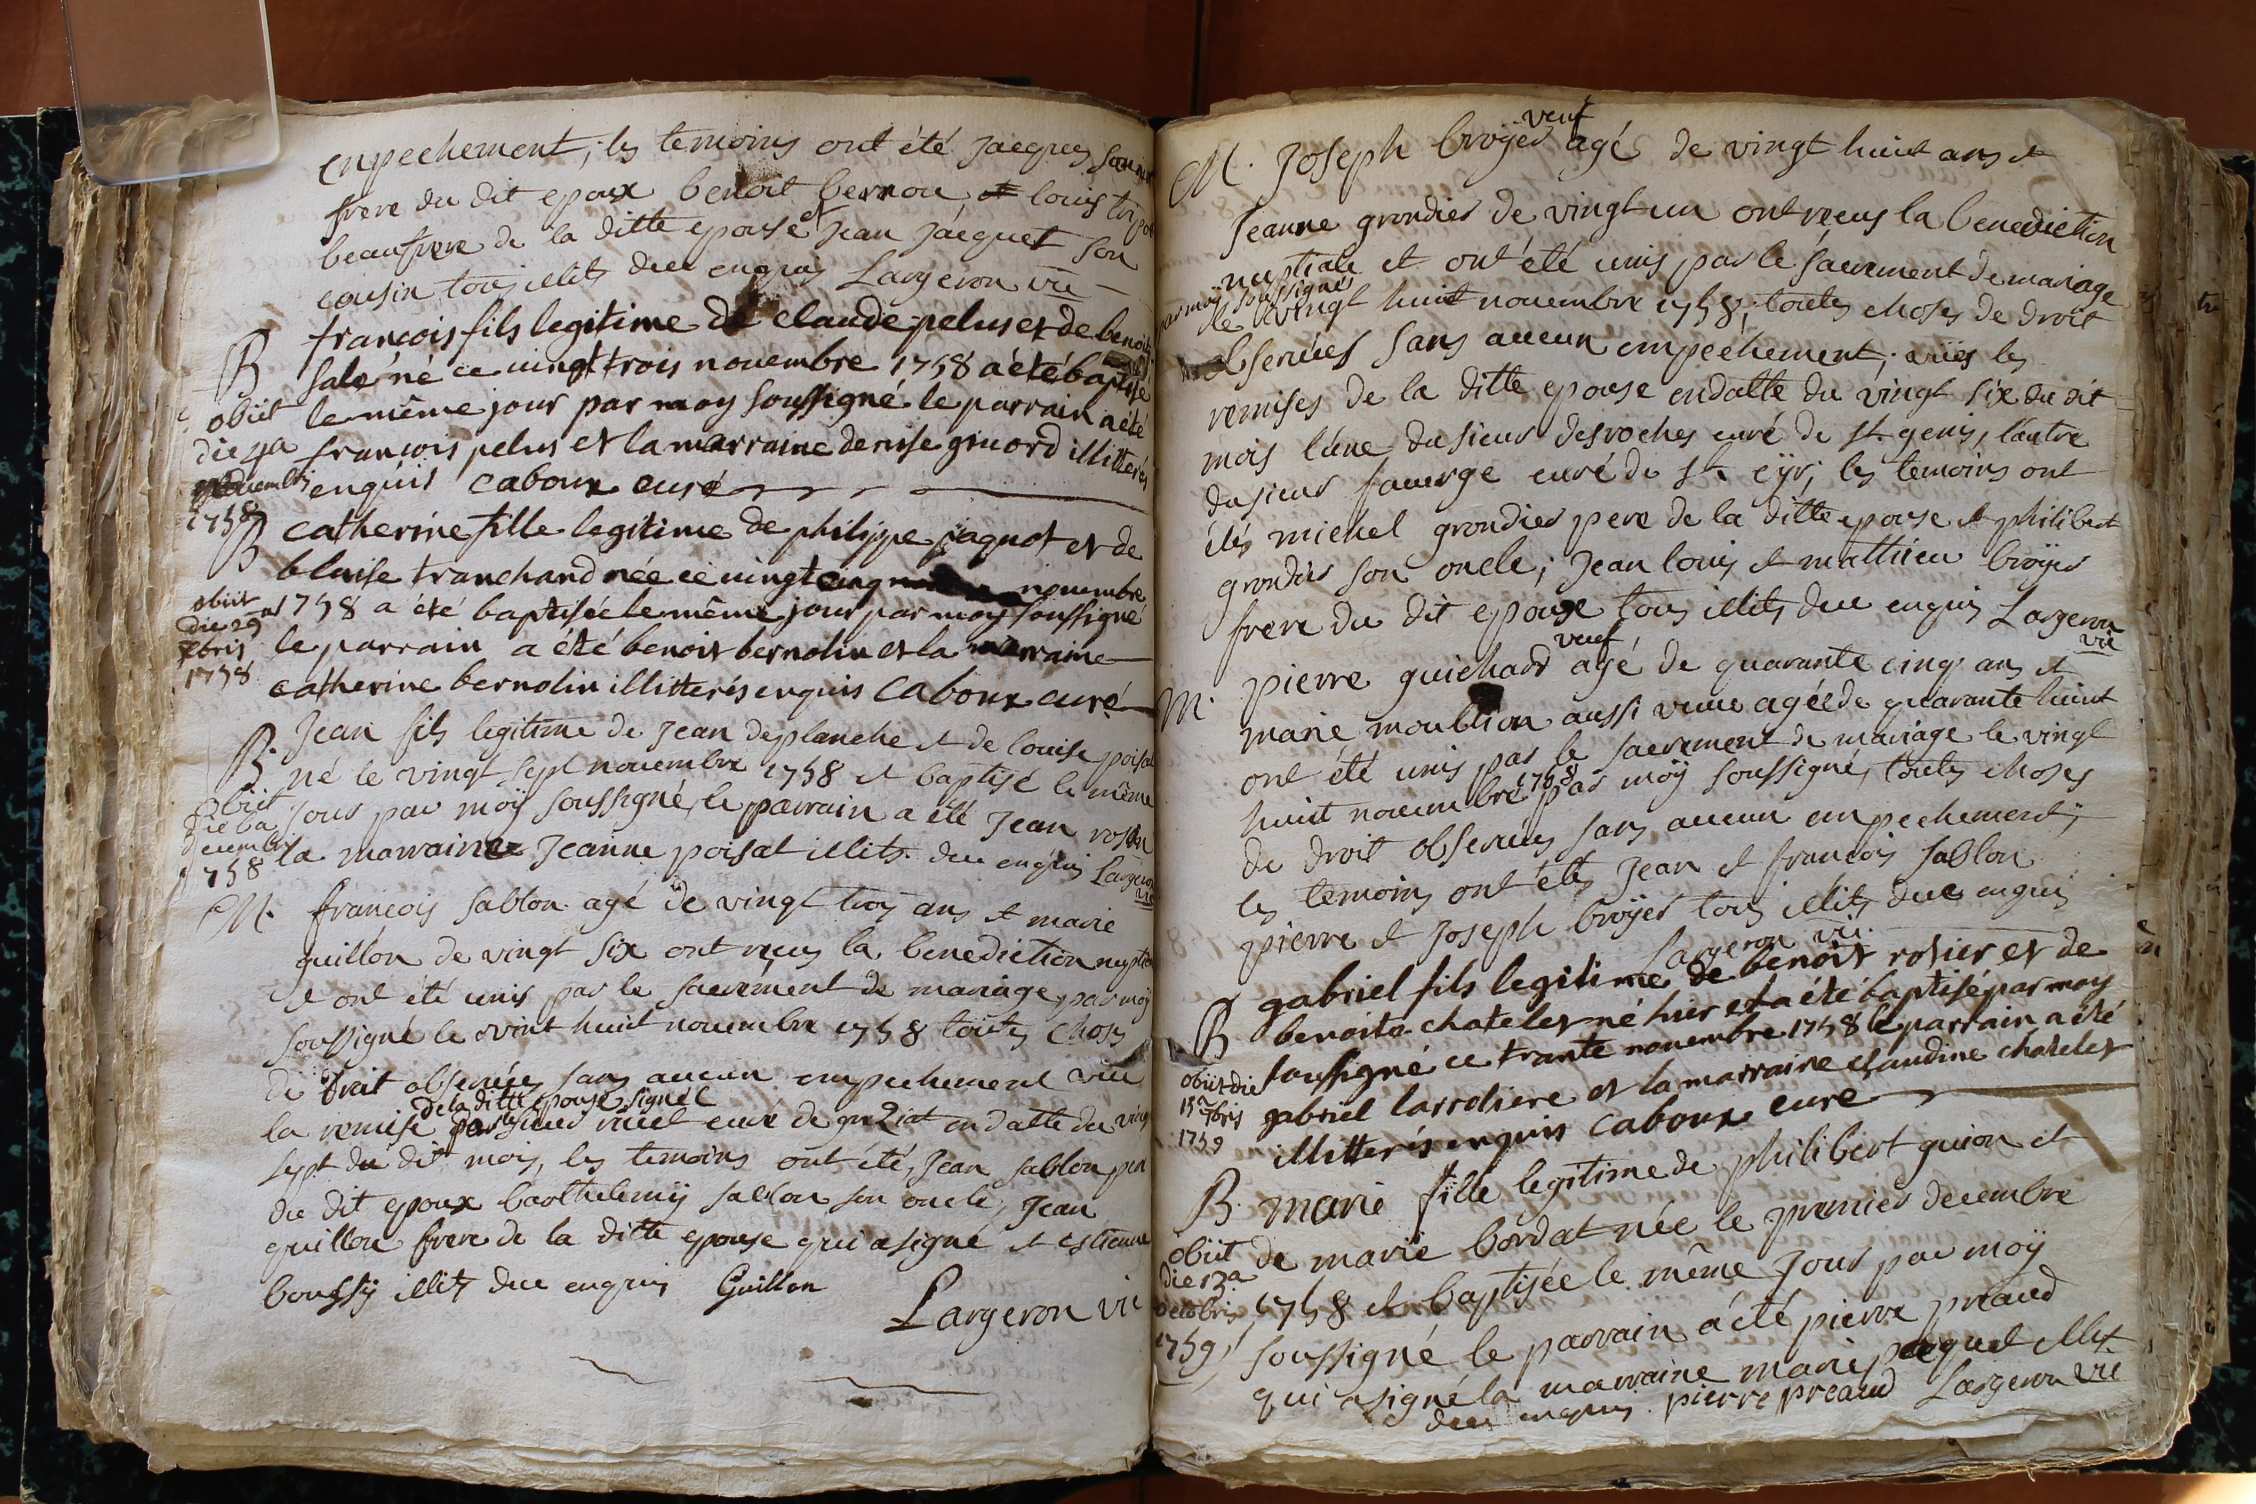 enpechement, les temoins ont été Jacques
frere du dit epoux benoit bernou louis
beaufrere de la ditte epouse et Jean Jacquet son
cousin tous illits due enquis Largeron vic
B françois fils legitime de claude pelus et de benoite
salé né ce vingt trois novembre 1758 a été baptisé
obiit le même jour par moy soussigné le parrain a été
die françois pelus et la marraine denise ginord illitterés
enquis caboux curé
1758
B catherine fille legitime de philippe jaquot et de
blaise tranchand née ce vingt cinq novembre
obiit 1758 a été baptisée le même jour par moy soussigné
die 29
xbris le parrain a été benoit bernolin et la marraine
1758 catherine bernolin illitterés enquis caboux curé
B. Jean fils legitime de Jean deplanche et de louise poisat
né le vingt sept novembre 1758 et baptisé le même
obiit jour par moÿ soussigné, le parrain a été Jean
decembris la marraine Jeanne poisat illits. due enquis Largeron
1758 vic
M. françois sablon agé de vingt trois ans et marie
guillon de vingt six ont reçus la benediction
et ont été unis par le sacrement de mariage, par moÿ
soussigné le vint huit novembre 1758 toutes choses
de droit observées sans aucun empechement vüe
de la ditte epouse signée
la remise par sieur curé de en datte du vingt
sept du dit mois, les temoins ont été, Jean sablon pere
du dit epoux barthelemÿ sablon son oncle, Jean
guillon frere de la ditte epouse qui a signé et estienne
boussÿ illits due enquis Guillon
Largeron vic
veuf
M. Joseph broÿer agé de vingt huit ans et
Jeanne grondier de vingt un ont reçus la benediction
nuptiale et ont été unis par le sacrement de mariage
par moy soussigné
le vingt huit novembre 1758, toutes choses de droit
observées sans aucun empechement; vües les
remises de la ditte epouse en datte du vingt six du dit
mois l'une du sieur desroches curé de st. genis, l'autre
du sieur curé de st. cÿr; les temoins ont
étés michel grondier pere de la ditte epouse et philibert
grondier son oncle; Jean louis et mathieu broÿer
frere du dit epoux tous illits due enquis Largeron
vic
veuf
M. pierre guichard agé de quarante cinq ans et
marie aussi veuve agée de quarante huit
ont été unis par le sacrement de mariage le vingt
1758
huit novembre par moÿ soussigné, toutes choses
de droit observées sans aucun empechement;
les temoins ont étés Jean et françois sablon
pierre et Joseph broÿer tous illits due enquis
Largeron vic.
gabriel fils legitime de benoit rosier et de
B benoita chatelet né hier et a été baptisé par moy
soussigné ce trante novembre 1758 le parrain a été
obiit die
15a gabriel larroliere et la marraine claudine chatelet
7bris
1759 illitterés enquis caboux curé
B. marie fille legitime de philibert guion et
obiit de marie bordat née le premier decembre
die 13a
octobris 1758 et baptisée le même jour par moÿ
1759 soussigné le parrain a été pierre preaud
qui a signé la marraine marie paquet illit.
due enquis. pierre preaud Largeron vic